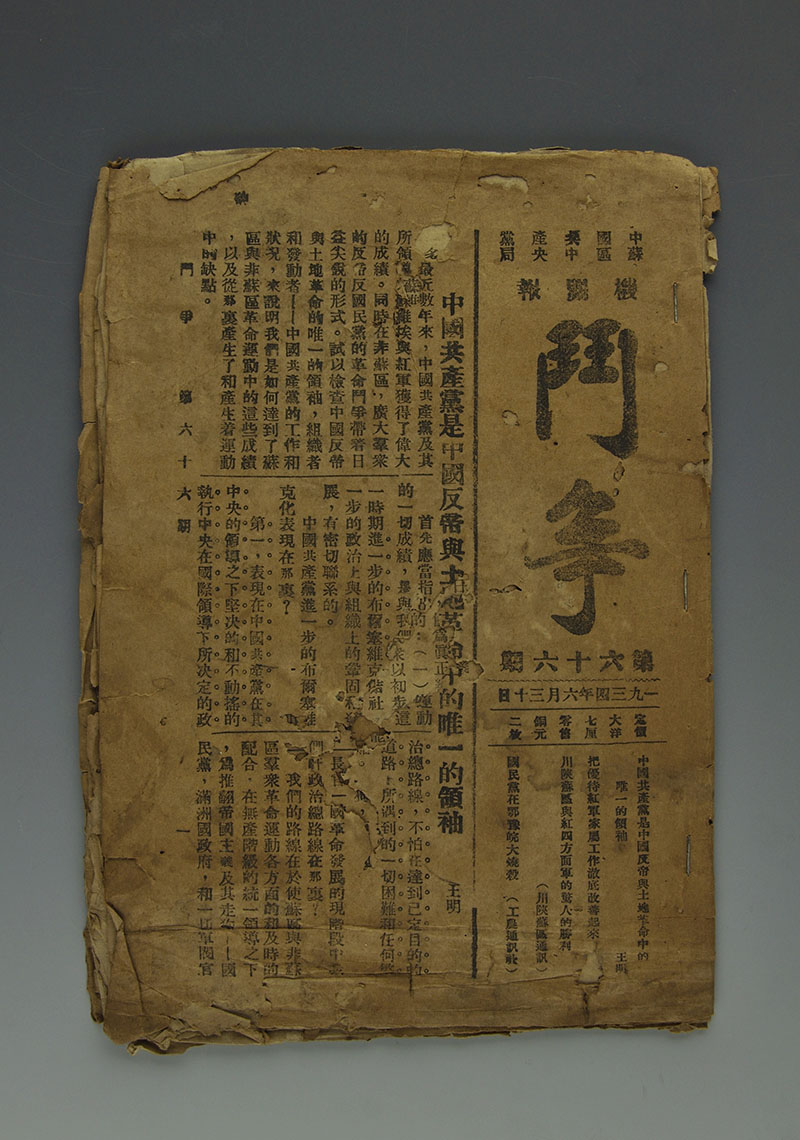 中國共產黨
蘇區中央局
機關報
鬥爭
第六十六期
一九三四年六月三十日
定價
大洋
七厘
零售
銅元
二枚
中國共產黨是中國反帝與土地革命中的
唯一的領袖 王明
把優待紅軍家屬工作澈底改善起來
川陝蘇區與紅四方面軍的驚人的勝利
(川陝蘇區通訊)
國民黨在鄂豫皖大燒殺 (工農通訊社)
中國共產黨是中國反帝與土地革命中的唯一的領袖
王明
最近數年來,中國共產黨及其
所領導蘇維埃與紅軍獲得了偉大
的成績。同時在非蘇區,廣大羣衆
的反帝反國民黨的革命鬥爭帶着日
益尖銳的形式。試以檢查中國反帝
與土地革命的唯一的領袖,組織者
和發動者——中國共產黨的工作和
狀況,來說明我們是如何達到了蘇
區與非蘇區革命運動中的這些成績
,以及從那裏產生了和產生着運動
中的缺點。
首先應當指出的:(一)運動
的一切成績,是與我們 以初步這
一時期進一步的布爾塞維克
一步的政治上與組織上的鞏固和
展,有密切聯系的。
中國共產黨進一步的布爾塞維
克化表現在那裏?
第一,表現在中國共產黨在其
中央的領導之下堅决的和不動搖的
執行中央在國際領導下所决定的政
治總路線,不怕在達到已定目的的
道路上所遇到的一切困難和在何
國革命發展的現階段中
們 政治總路線在那裏?
我們的路線在於使蘇區與非蘇
區羣衆革命運動各方面的和及時的
配合,在無產階級的統一領導之下
,爲推翻帝國主義及其走狗——國
民黨,滿洲國政府,和一切軍閥官
鬥爭 第六十六期 一